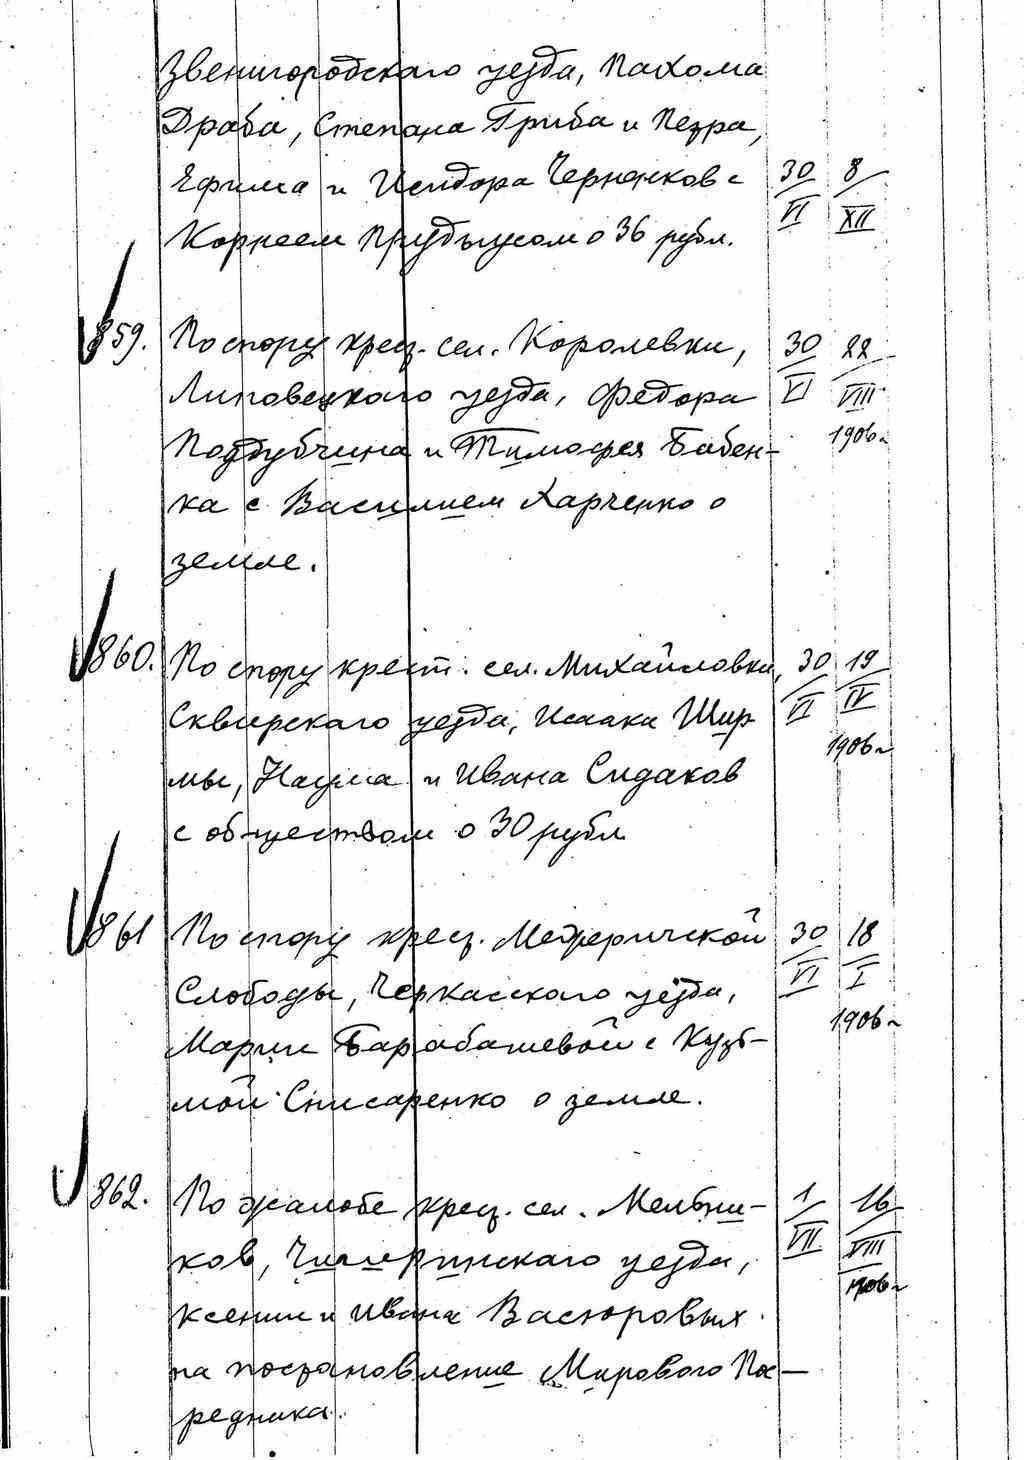 Звенигородскаго уезда, Пахома
Драба, Степана Гриба и Петра,
Ефима и Исидора Черненков с
Корнеем Прудыусом о 36 рубл.
30/VI 8/XII
859. По спору крест. сел. Королевки,
Липовецкаго уезда, Федора
Поддубчина и Тимофея Бабен-
ка с Василием Харченко о
земле.
30/VI 22/VIII 1906 г
860. По спору крест. сел. Михайловки,
Сквирскаго уезда, Исаака Шир-
мы, Наума и Ивана Сидаков
с обществом о 30 рубл
30/VI 19/IV 1906 г
861 По спору крест. Межеричской
Слободы, Черкасскаго уезда,
Марии Барабашевой с Кузь-
мой Слисаренко о земле.
30/VI 18/I 1906 г
862. По жалобе крест. сел. Мельни-
ков, Чигиринскаго уезда,
Ксении и Ивана Васюровых
на постановление Мирового По-
редника.
1/VII 16/VIII 1906 г